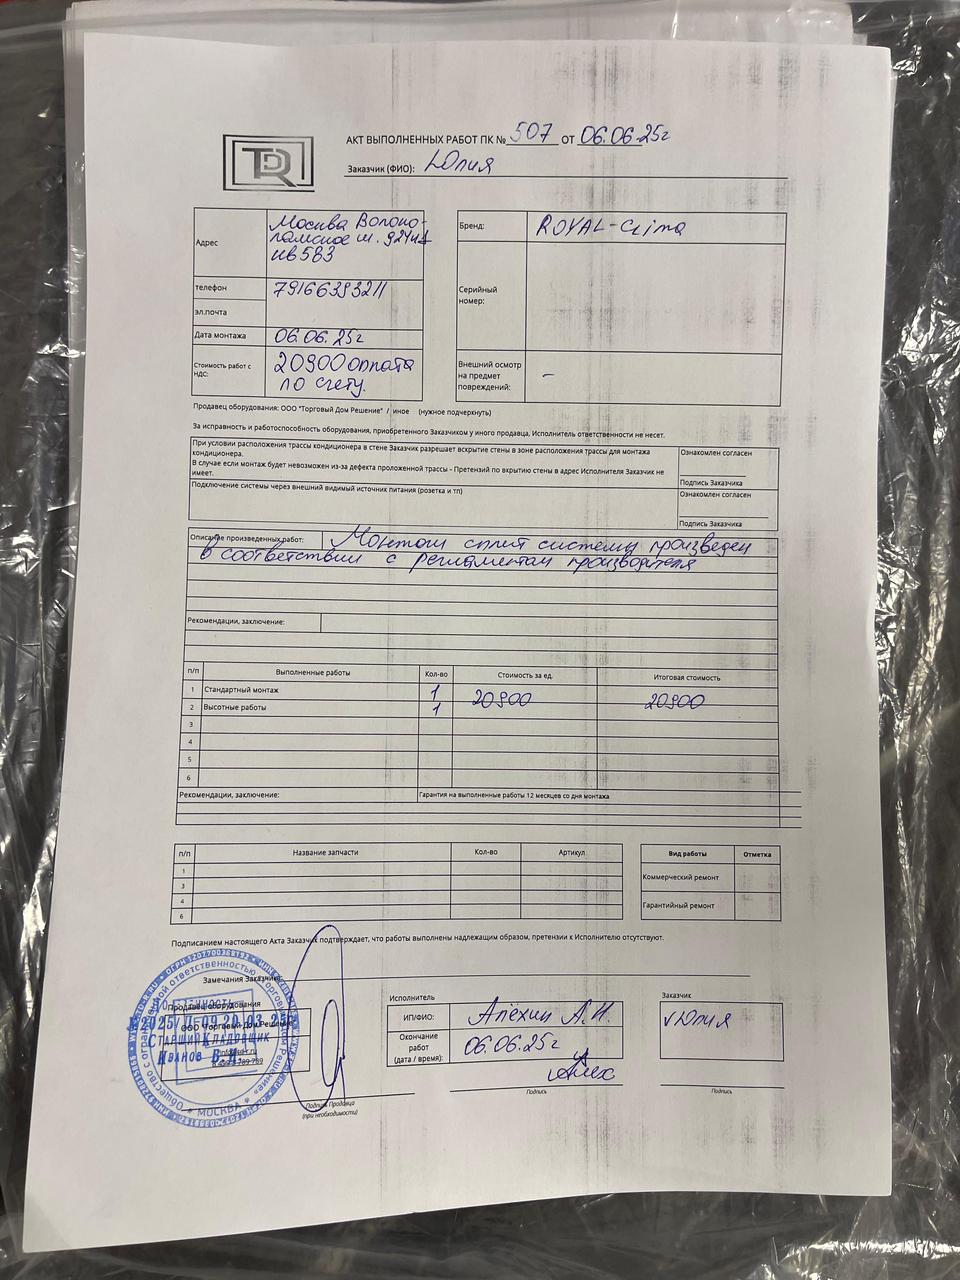 АКТ ВЫПОЛНЕННЫХ РАБОТ ПК № 507 ОТ 06.06.25г
TDR
Заказчик (ФИО): Юлия
Адрес
Москва Волоко-
ламское ш.
кв 583
телефон 79166393211
эл.почта
Дата монтажа 06.06.25г
Стоимость работ с НДС:
20900 оплата
по счету.
Бренд: ROYAL-Clima
Серийный
номер:
Внешний осмотр
на предмет
повреждений: –
Продавец оборудования: ООО "Торговый Дом Решение" / иное (нужное подчеркнуть)
За исправность и работоспособность оборудования, приобретенного Заказчиком у иного продавца, Исполнитель ответственности не несет.
При условии расположения трассы кондиционера в стене Заказчик разрешает вскрытие стены в зоне расположения трассы для монтажа
кондиционера.
В случае если монтаж будет невозможен из-за дефекта проложенной трассы - Претензий по вкрытию стены в адрес Исполнителя Заказчик не
имеет.
Ознакомлен согласен
Подпись Заказчика
Подключение системы через внешний видимый источник питания (розетка и тп)
Ознакомлен согласен
Подпись Заказчика
Описание произведенных работ: Монтаж сплит системы произведен
в соответствии с регламентом производителя
Рекомендации, заключение:
п/п Выполненные работы Кол-во Стоимость за ед. Итоговая стоимость
1 Стандартный монтаж 1 20900 20900
2 Высотные работы 1
3
4
5
6
Рекомендации, заключение: Гарантия на выполненные работы 12 месяцев со дня монтажа
п/п Название запчасти Кол-во Артикул
1
3
4
6
Вид работы Отметка
Коммерческий ремонт
Гарантийный ремонт
Подписанием настоящего Акта Заказчик подтверждает, что работы выполнены надлежащим образом, претензии к Исполнителю отсутствуют.
Замечания Заказчика:
Продавец оборудования
ООО "Торговый Дом Решение"
Старший Кладовщик
Иванов В.
МОСКВА
Подпись Продавца
(при необходимости)
Исполнитель
ИП/ФИО: Алехин А.И.
Окончание
работ
(дата / время): 06.06.25г
Алех
Подпись
Заказчик
Юлия
Подпись